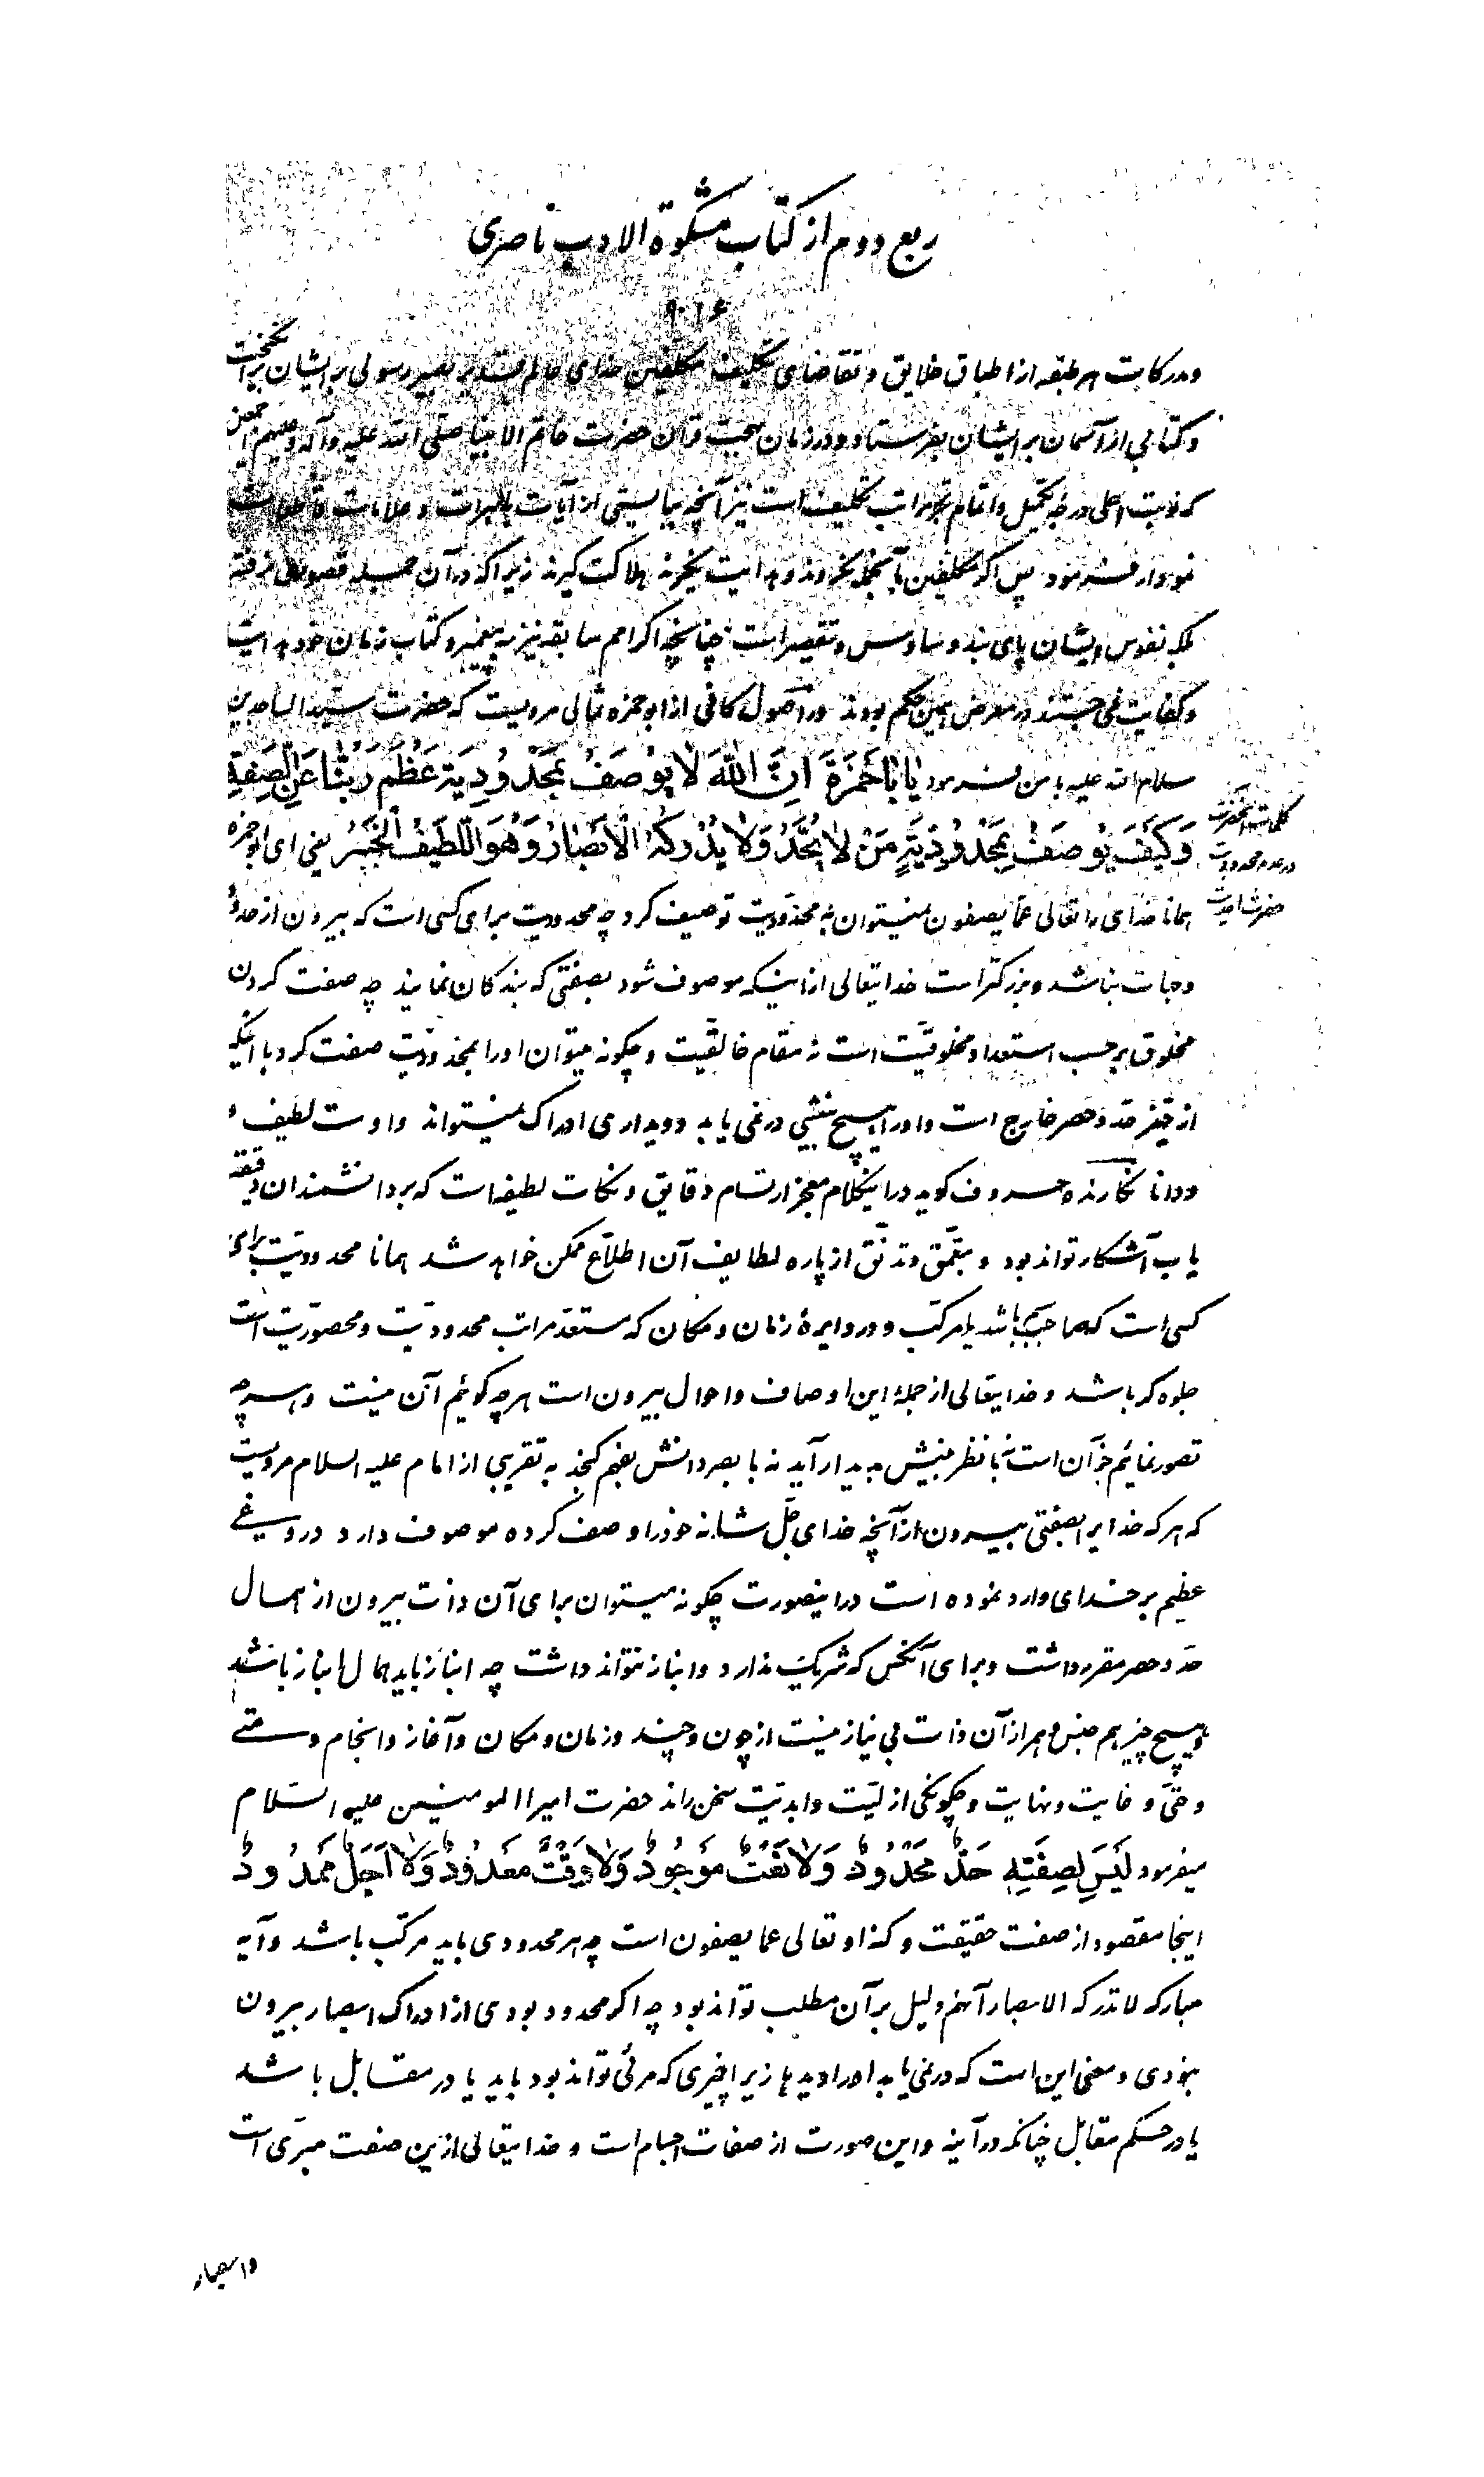 ربع دوم از کتاب مشکوة الادب ناصری
۹۰۱۶
ومدرکات هر طبقه از اطباق خلایق و تقاضای تکلیف مکلفین خدای عالم قدیر بصیر رسولی بر ایشان برانگیخت
و کتابی از آسمان بر ایشان بفرستاد و در زمان بعثت قرآن حضرت خاتم الانبیا صلی الله علیه وآله وعلیهم اجمعین
که نوبت اعلی درجه تکمیل و اتمام مراتب تکلیف است نیز آنچه ببایستی از آیات باهرات و علامات قاطعات
نمودار فرمود پس اگر مکلفین بآنجمله نگروند و هدایت نگیرند هلاکت گیرند زیرا که در آن جمله قصوری نرفته
بلکه نفوس ایشان پای بند وساوس و تقصیر است چنانچه اگر امم سابقه نیز به پیغمبر و کتاب زمان خود هدایت
و کفایت نمی جستند در معرض همین حکم بودند در اصول کافی از ابو حمزه ثمالی مرویست که حضرت سید الساجدین
سلام الله علیه با من فرمود یَا بَا حَمْزَةَ اِنَّ اللّٰهَ لَا یُوْصَفُ بِمَحْدُوْدِیَّةٍ عَظُمَ رَبُّنَا عَنِ الصِّفَةِ
وَكَیْفَ یُوْصَفُ بِمَحْدُوْدِیَّةٍ مَنْ لَا یُحَدُّ وَلَا یُدْرِكُهُ الْاَبْصَارُ وَهُوَ اللَّطِیْفُ الْخَبِیْرُ یعنی ای ابو حمزه
کلمات آنحضرت
در عدم محدودیت
حضرت احدیت
همانا خدای را تعالی عما یصفون نمیتوان به محدودیت توصیف کرد چه محدودیت برای کسی است که بیرون از حدود
وجهات نباشد و بزرگتر است خدایتعالی از اینکه موصوف شود بصفتی که بندگان نمایند چه صفت کردن
مخلوق بر حسب استعداد مخلوقیت است نه مقام خالقیت و چگونه میتوان او را بمحدودیت صفت کرد با اینکه
از حیّز حد و حصر خارج است و او را هیچ بینشی در نمی یابد و دیداری ادراک نمیتواند و اوست لطیف
و دانا نگارنده حروف گوید در اینکلام معجز ارتسام دقایق و نکات لطیفه است که بر دانشمندان دقیقه
یاب آشکار تواند بود و بتعمّق و تدقّق از پاره لطایف آن اطلاع ممکن خواهد شد همانا محدودیت برای
کسی است که صاحب جسم باشد یا مرکب و در دایرهٔ زمان و مکان که مستعد مراتب محدودیت و محصوریت است
جلوه گر باشد و خدایتعالی از جملهٔ این اوصاف و احوال بیرون است هر چه گوئیم آن نیست و هر چه
تصور نمائیم جز آن است نه با نظر بینش پدیدار آید نه با بصر دانش بفهم گنجد به تقریبی از امام علیه السلام مرویست
که هر که خدایرا بصفتی بیرون از آنچه خدای جلّ شانه خود را وصف کرده موصوف دارد دروغی
عظیم بر خدای وارد نموده است در اینصورت چگونه میتوان برای آن ذات بیرون از همال
حد و حصر مقرر داشت و برای آنکس که شریک ندارد و انباز نتواند داشت چه انباز باید همال انباز باشد
و هیچ چیز هم جنس و همراز آن ذات بی نیاز نیست از چون و چند و زمان و مکان و آغاز و انجام و متی
و حتّی و غایت و نهایت و چگونگی ازلیّت و ابدیّت سخن راند حضرت امیر المومنین علیه السّلام
میفرمود لَیْسَ لِصِفَتِهٖ حَدٌّ مَحْدُوْدٌ وَلَا نَعْتٌ مَوْجُوْدٌ وَلَا وَقْتٌ مَعْدُوْدٌ وَلَا اَجَلٌ مَمْدُوْدٌ
اینجا مقصود از صفت حقیقت و کنه او تعالی عما یصفون است چه هر محدودی باید مرکب باشد و آیه
مبارکه لا تدرکه الابصار آنهم دلیل بر آن مطلب تواند بود چه اگر محدود بودی از ادراک ابصار بیرون
نبودی و معنی این است که در نمی یابد او را دیدها زیرا چیزی که مرئی تواند بود باید یا در مقابل باشد
یا در حکم مقابل چنانکه در آینه و این صورت از صفات اجسام است و خدایتعالی ازین صفت مبرّی است
وابصار